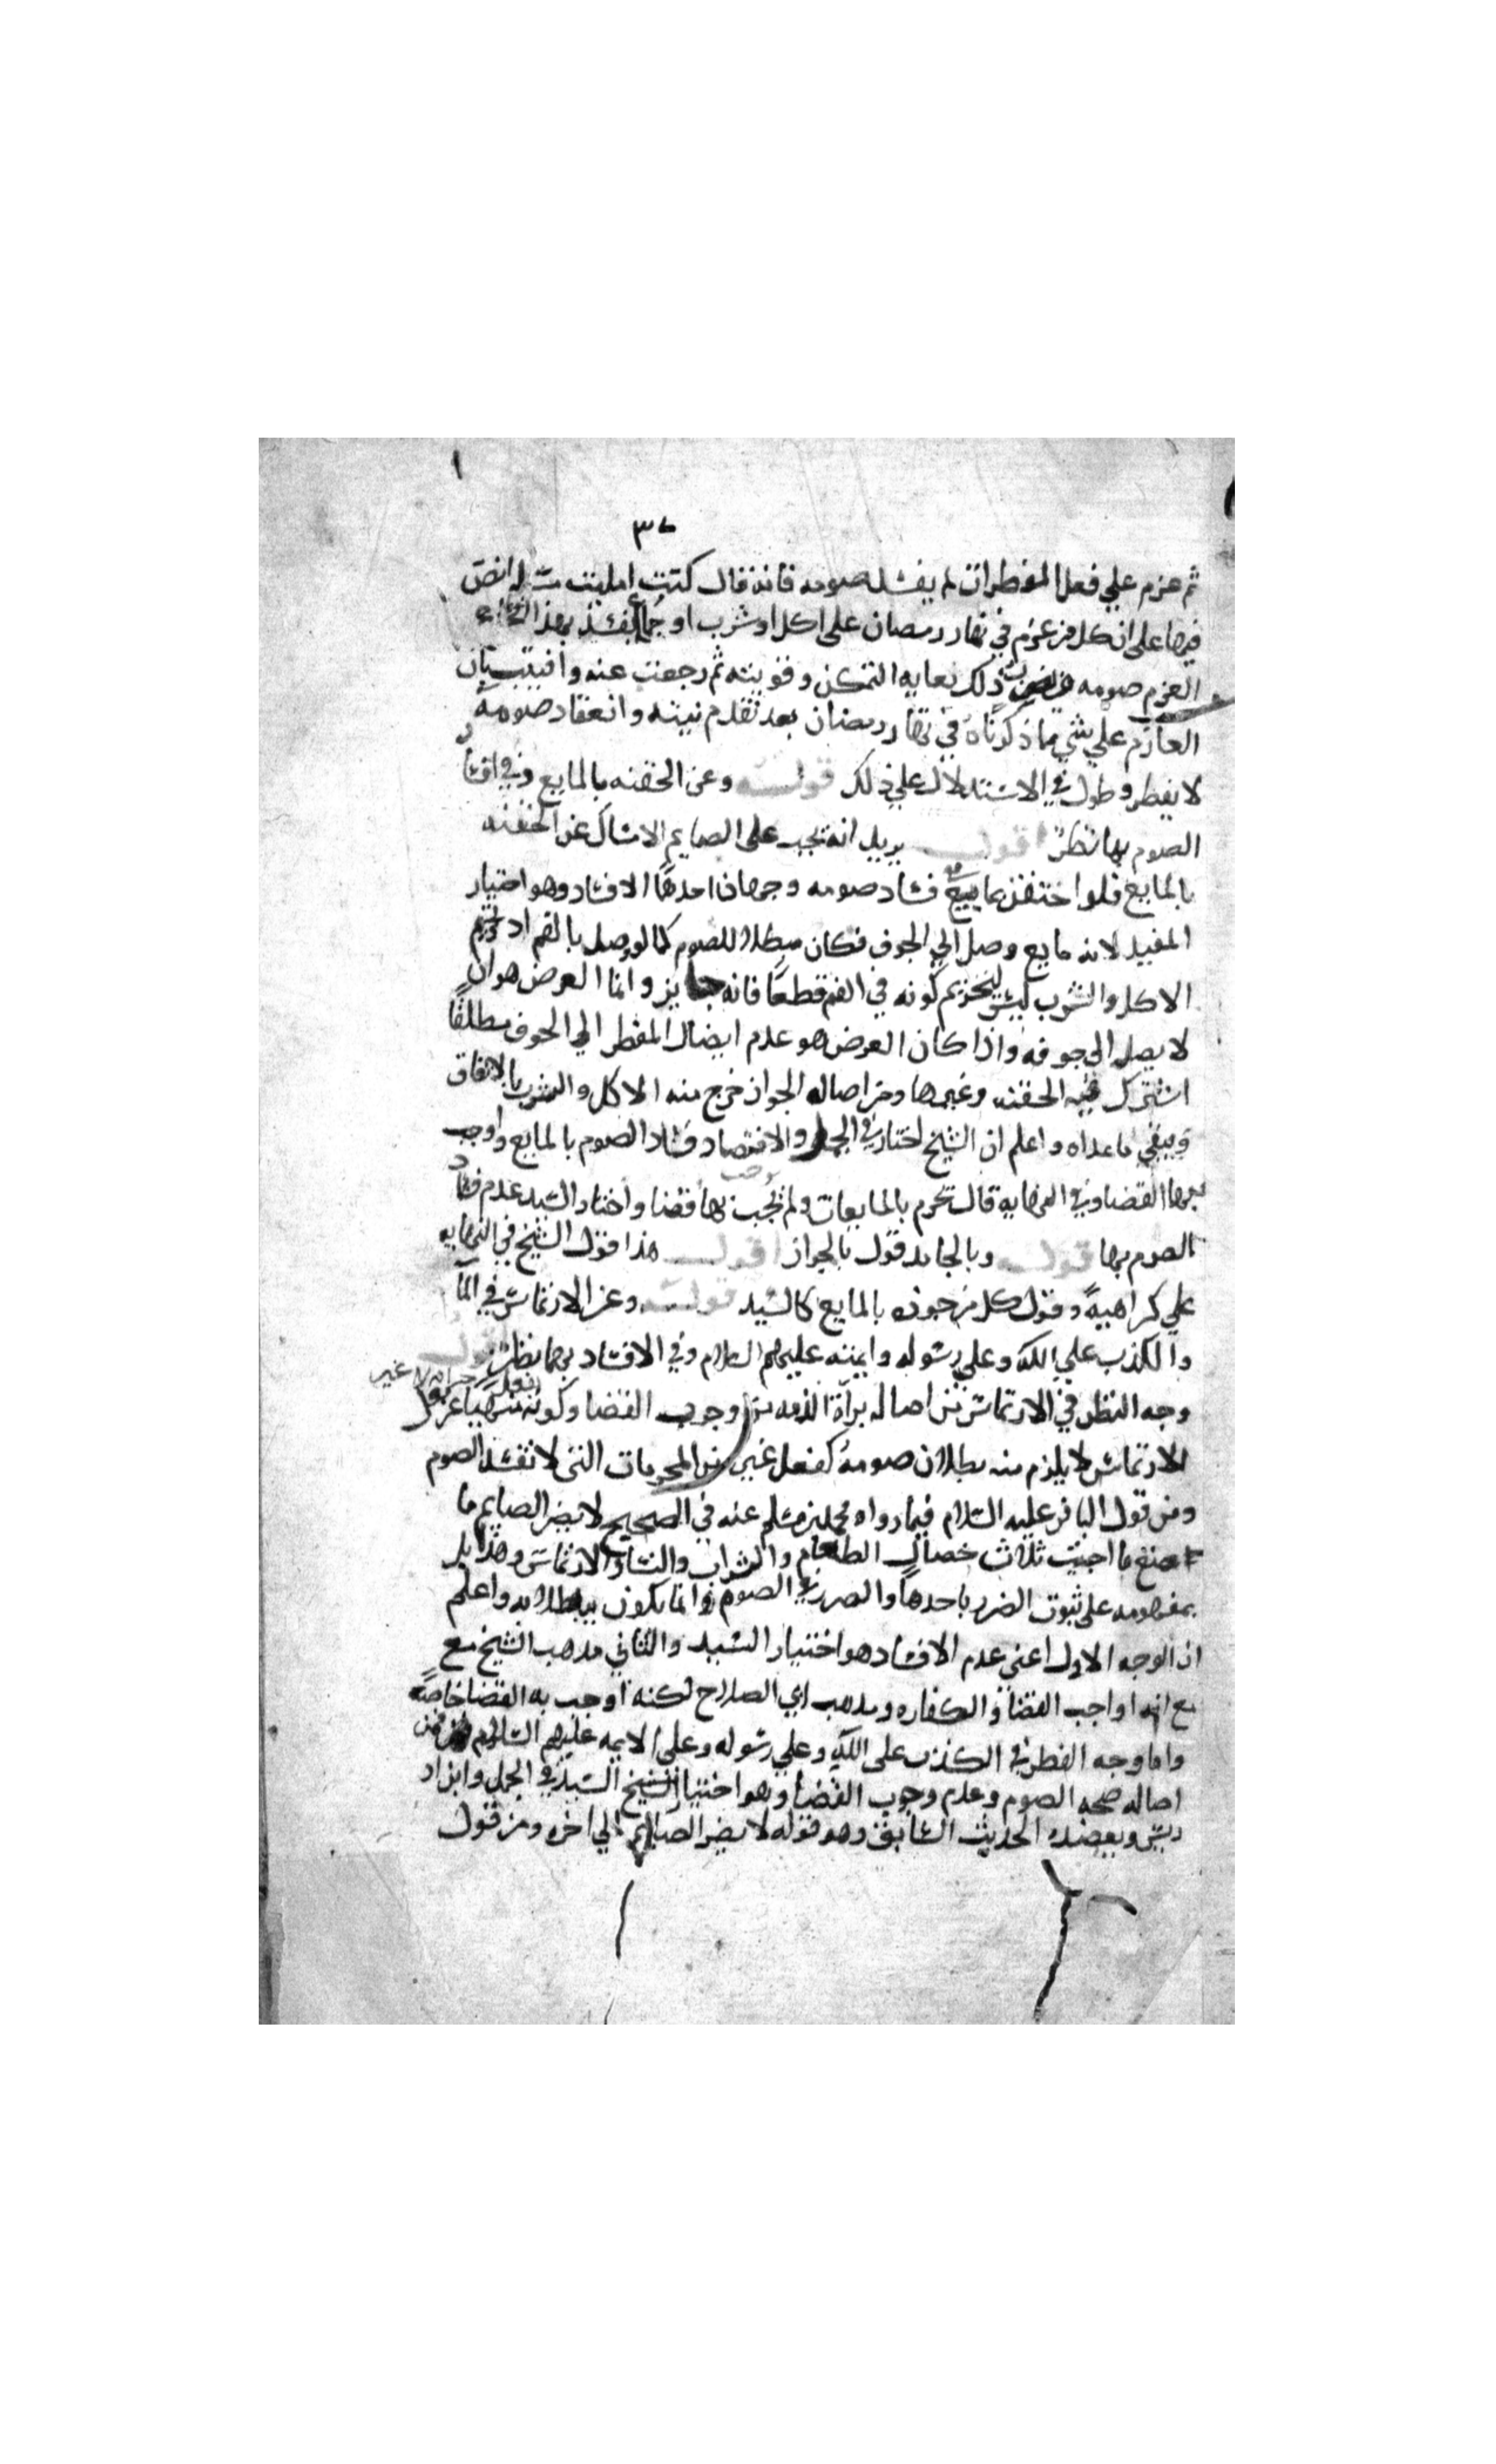 ٣٠
ثم عزم علي فعل المفطرات لم يفسد صومه فانه قال كنت امليت مسله انصر
فيها علي ان كل من عزم في نهار رمضان علي اكل او شرب او جماع يفسد بهذا
العزم صومه ذلك بغايه التمكن وقويته ثم رجعت عنه وافتيت بان
العازم علي شي مما ذكرناه في نهار رمضان بعد تقدم نيته وانعقاد صومه
لا يفطر وطول في الاستدلال علي ذلك قوله وعن الحقنه بالمايع وفي افساد
الصوم بها نظر اقول يريد انه يجب علي الصايم الامساك عن الحقنه
بالمايع فلو احتقن بمايع ففي فساد صومه وجهان احدهما الافساد وهو اختيار
المفيد لانه مايع وصل الي الجوف فكان مبطلا للصوم كما لو وصل بالفم اذ تحريم
الاكل والشرب ليس لتحريم كونه في الفم قطعا فانه جايز وانما الغرض هو ان
لا يصل الي جوفه واذا كان الغرض هو عدم ايصال المفطر الي الجوف مطلقا
اشترك فيه الحقنه وغيرها ومن اصاله الجواز خرج منه الاكل والشرب بالاتفاق
ويبقي ماعداه واعلم ان الشيخ اختار في الجمل والاقتصاد فساد الصوم بالمايع واوجب
بها القضا وفي النهايه قال تحرم بالمايعات ولم يجب بها قضا واختار السيد عدم فساد
الصوم بها قوله وبالجامد قول بالجواز اقول هذا قول الشيخ في النهايه
علي كراهية وقول كل من جوزه بالمايع كالسيد قوله وعن الارتماس في الما
والكذب علي الله وعلي رسوله وايمته عليهم السلام وفي الافساد بهما نظر اقول
وجه النظر في الارتماس من اصاله براة الذمه من وجوب القضا وكونه منهيا عن
الارتماس لا يلزم منه بطلان صومه كفعل غيره من المحرمات التي لا تفسد الصوم
ومن قول الباقر عليه السلام فيما رواه محمد بن مسلم عنه في الصحيح لا يضر الصايم ما
صنع ما اجتنب ثلاث خصال الطعام والشراب والنسا والارتماس وهذا يدل
بمفهومه علي ثبوت الضرر باحدها والضرر في الصوم انما يكون ببطلانه واعلم
ان الوجه الاول اعني عدم الافساد هو اختيار السيد والثاني مذهب الشيخ مع
مع انه اوجب القضا والكفاره ومذهب ابي الصلاح لكنه اوجب به القضا خاصة
واما وجه الفطر في الكذب علي الله وعلي رسوله وعلي الايمه عليهم السلام فمن
اصاله صحه الصوم وعدم وجوب القضا وهو اختيار الشيخ السيد في الجمل وابن اد
ريس ويعضده الحديث السابق وهو قوله لا يضر الصايم الي اخره ومن قول